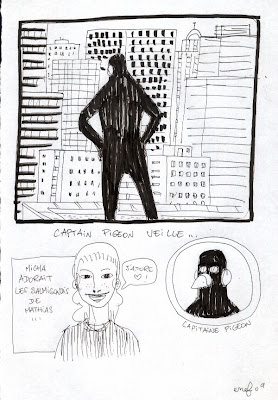 CAPTAIN PIGEON VEILLE...
MICHA
ADORAIT
LES SAUMIGONDIS
DE
MATHIAS
...
CAPITAINE PIGEON